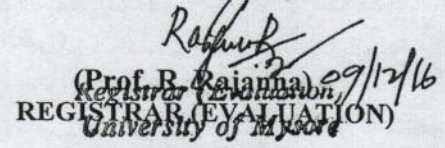 09/12/16
(Prof. R. Rajanna)
Registrar (Evaluation)
REGISTRAR (EVALUATION)
University of Mysore